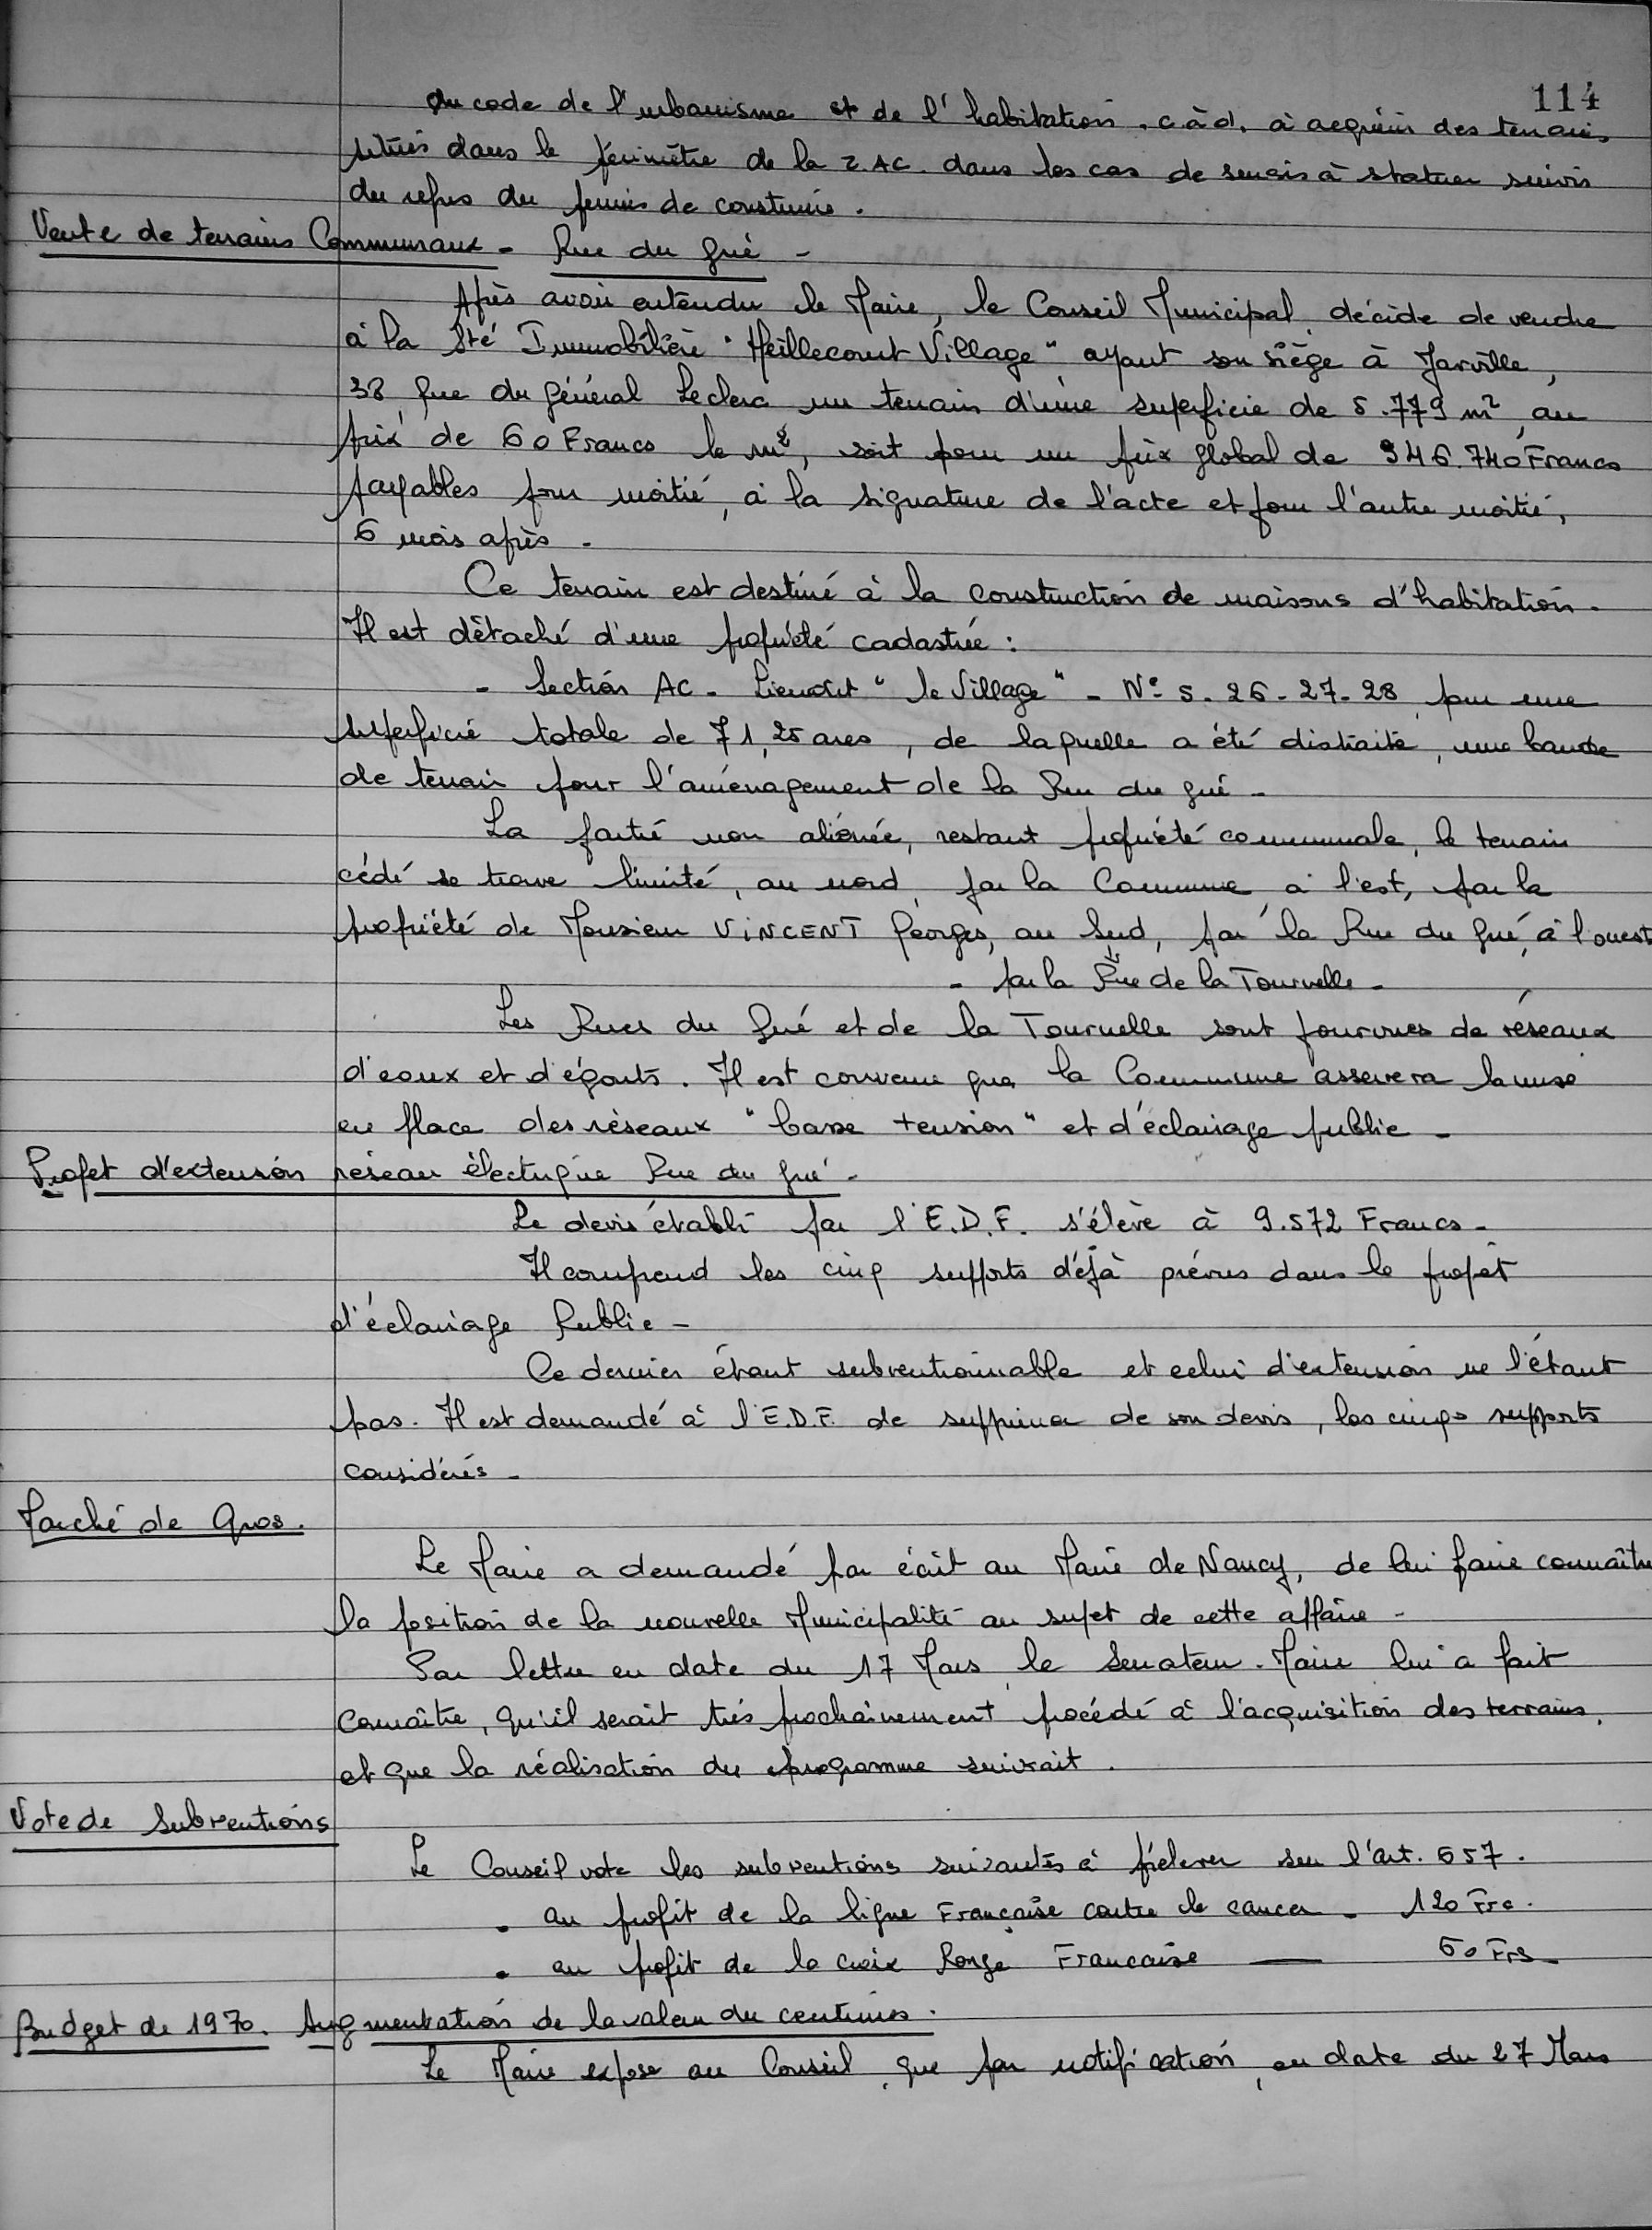 114
du code de l'urbanisme et de l'habitation. c.à.d. à acquérir des terrains
situés dans le périmètre de la Z.AC. dans les cas de sursis à statuer suivis
du refus du permis de construire.
Vente de terrains Communaux - Rue du gué -
Après avoir entendu le Maire, le Conseil Municipal, décide de vendre
à la Sté Immobilière "Heillecourt Village" ayant son siège à Jarville,
38 Rue du général Leclerc un terrain d'une superficie de 5.779 m², au
prix de 60 Francs le m², soit pour un prix global de 346.740 Francs
payables pour moitié, à la signature de l'acte et pour l'autre moitié,
6 mois après -
Ce terrain est destiné à la construction de maisons d'habitation.
Il est détaché d'une propriété cadastrée :
- Section AC - Lieudit "le Village" - N° 5-26-27-28 pour une
superficie totale de 71,25 ares, de laquelle a été distraite, une bande
de terrain pour l'aménagement de la Rue du gué -
La partie non aliénée, restant propriété communale, le terrain
cédé se trouve limité, au nord, par la Commune, à l'est, par la
propriété de Monsieur VINCENT Georges, au Sud, par la Rue du gué, à l'ouest
- par la Rue de la Tournelle -
Les Rues du Gué et de la Tournelle sont pourvues de réseaux
d'eaux et d'égouts. Il est convenu que la Commune assurera la mise
en place des réseaux "basse tension" et d'éclairage public -
Projet d'extension réseau électrique Rue du gué -
Le devis établi par l'E.D.F. s'élève à 9.572 Francs -
Il comprend les cinq supports déjà prévus dans le projet
d'éclairage Public -
Ce dernier étant subventionnable et celui d'extension ne l'étant
pas. Il est demandé à l'E.D.F. de supprimer de son devis, les cinqs supports
considérés -
Marché de Gros.
Le Maire a demandé par écrit au Maire de Nancy, de lui faire connaître
la position de la nouvelle Municipalité au sujet de cette affaire -
Par lettre en date du 17 Mars, le Senateur-Maire lui a fait
connaître, qu'il serait très prochainement procédé à l'acquisition des terrains,
et que la réalisation du programme suivrait.
Vote de Subventions
Le Conseil vote les subventions suivantes à prélever sur l'art. 657.
- au profit de la ligue Française contre le cancer - 120 Frs.
- au profit de la croix Rouge Française — 60 Frs
Budget de 1970. Augmentation de la valeur du centimes.
Le Maire expose au Conseil, que par notification, en date du 27 Mars